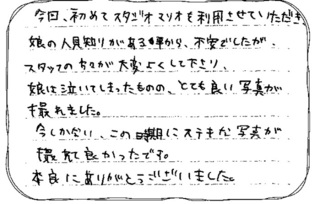 今回、初めてスタジオマリオを利用させていただき
娘の人見知りがある事から、不安でしたが、
スタッフの方々が大変よくして下さり、
娘は泣いてしまったものの、とても良い写真が
撮れました。
今しかない、この時期にステキな写真が
撮れて良かったです。
本当にありがとうございました。